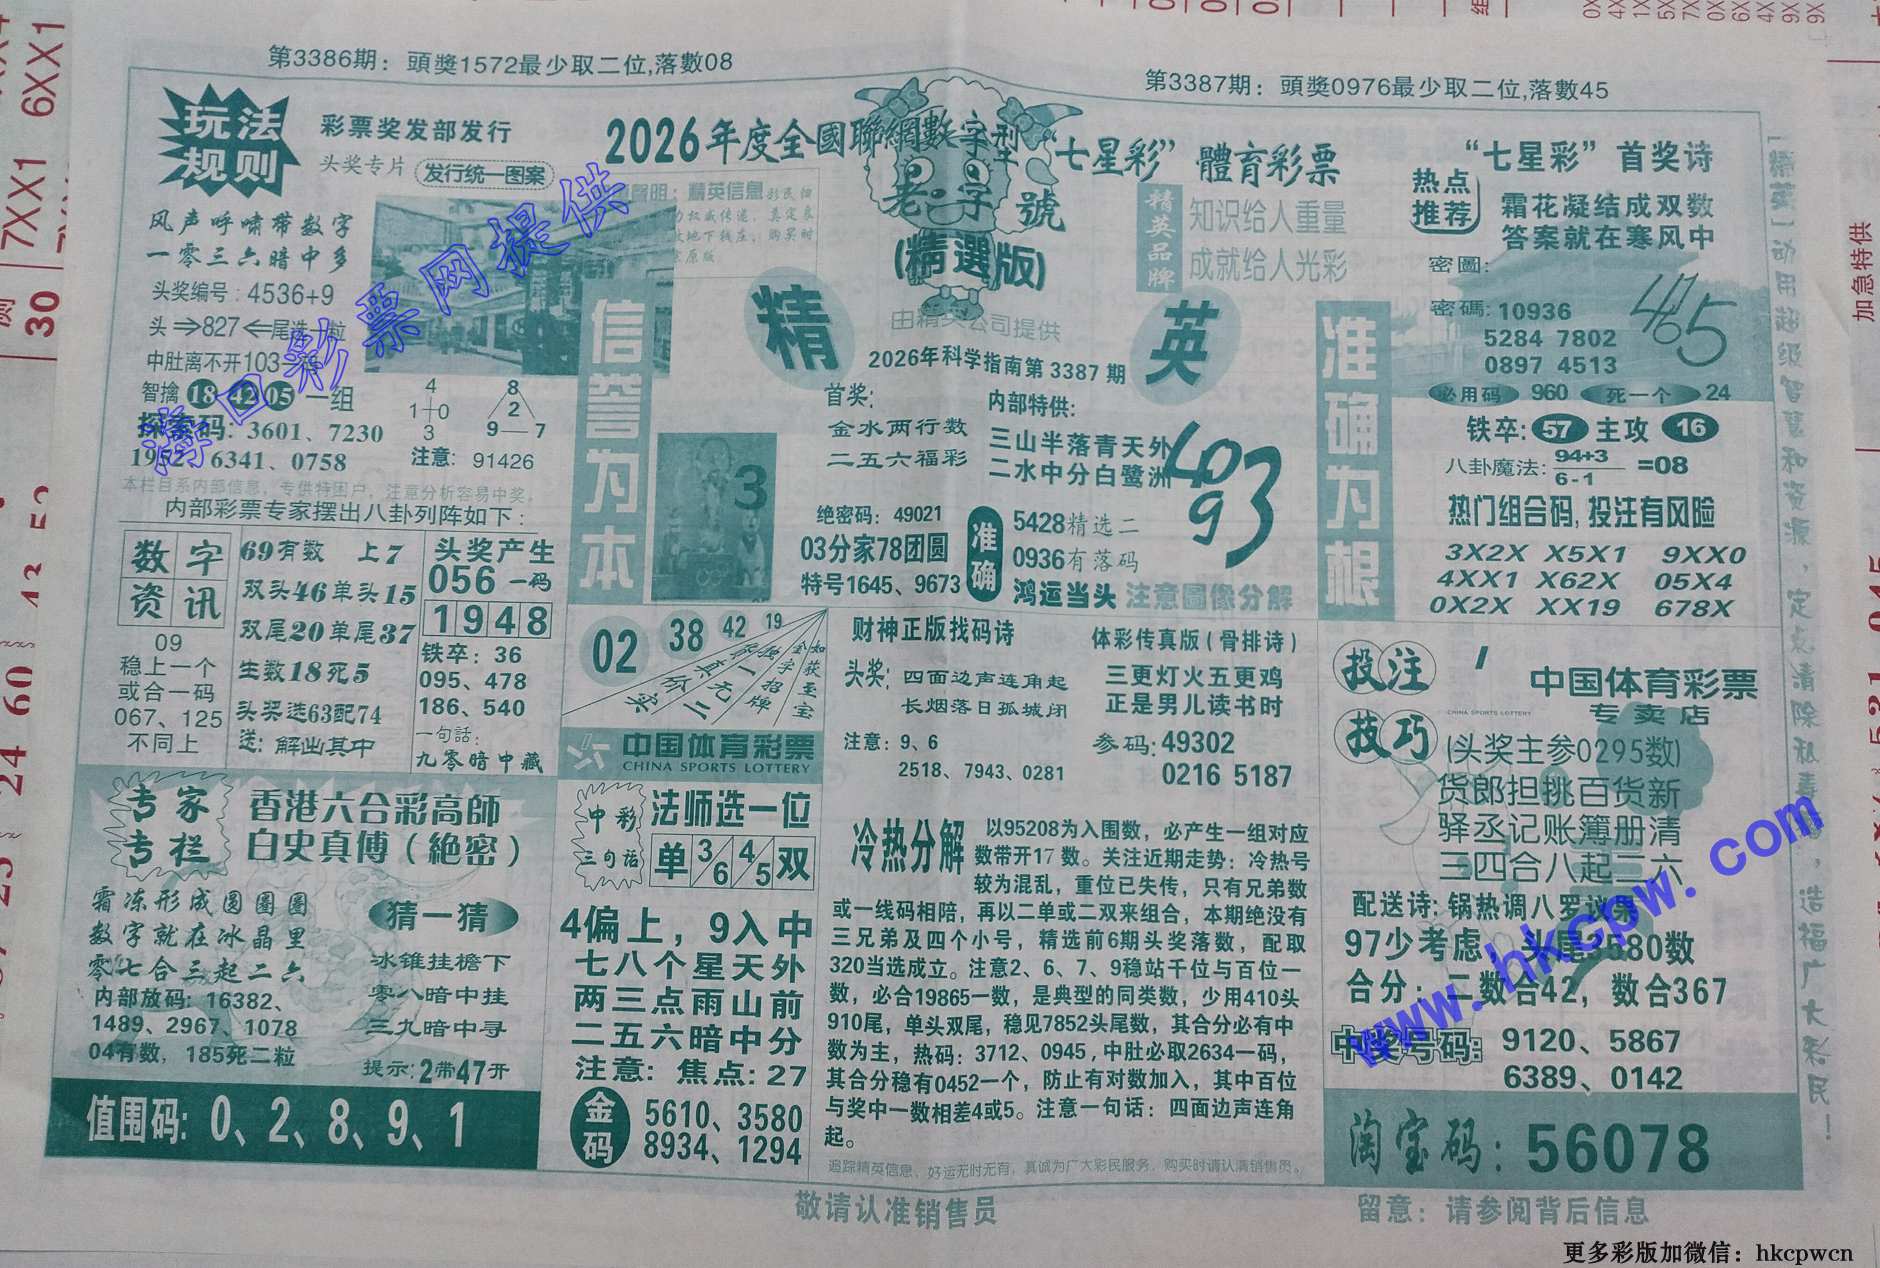 第3386期：頭獎1572最少取二位,落數08
第3387期：頭獎0976最少取二位,落數45
玩法
规则
彩票奖发部发行
头奖专片
发行统一图案
2026年度全國聯網數字型“七星彩”體育彩票
老字號
(精選版)
由精英公司提供
精英品牌
知识给人重量
成就给人光彩
“七星彩”首奖诗
热点
推荐
霜花凝结成双数
答案就在寒风中
密圖:
密碼: 10936
5284 7802
0897 4513
465
必用码 960 死一个 24
铁卒: 57 主攻 16
八卦魔法: 94+3
6-1
=08
热门组合码, 投注有风险
3X2X X5X1 9XX0
4XX1 X62X 05X4
0X2X XX19 678X
风声呼啸带数字
一零三六暗中多
头奖编号: 4536+9
头⇒827⇐尾选一粒
中肚离不开103
智擒 18 42 05 一组
探索码: 3601、7230
6341、0758
4
1 0
3
8
2
9 7
注意: 91426
本栏目系内部信息，专供特困户，注意分析容易中奖。
内部彩票专家摆出八卦列阵如下:
数字
资讯
09
稳上一个
或合一码
067、125
不同上
69有数 上7
双头46单头15
双尾20单尾37
生数18死5
头奖选63配74
送: 解出其中
头奖产生
056一码
1948
铁卒: 36
095、478
186、540
一句話:
九零暗中藏
信誉为本
3
精英
2026年科学指南第3387期
首奖:
金水两行数
二五六福彩
内部特供:
三山半落青天外
二水中分白鹭洲
409
93
绝密码: 49021
03分家78团圆
特号1645、9673
准确
5428精选二
0936有落码
鸿运当头 注意圖像分解
准确为根
02 38 42 19
如获至宝
金字招牌
中国体育彩票
CHINA SPORTS LOTTERY
财神正版找码诗
头奖: 四面边声连角起
长烟落日孤城闭
注意: 9、6
2518、7943、0281
体彩传真版(骨排诗)
三更灯火五更鸡
正是男儿读书时
参码: 49302
0216 5187
投注
技巧
中国体育彩票
CHINA SPORTS LOTTERY
专卖店
(头奖主参0295数)
货郎担挑百货新
驿丞记账簿册清
三四合八起二六
配送诗: 锅热调八罗议录
97少考虑，头尾3580数
合分: 二数合42, 数合367
中奖号码: 9120、5867
6389、0142
淘宝码: 56078
专家
专栏
香港六合彩高師
白史真傅(絶密)
霜冻形成圆圈圈
数字就在冰晶里
零七合三起二六
内部放码: 16382、
1489、2967、1078
04有数，185死二粒
猜一猜
冰锥挂檐下
零八暗中挂
三九暗中寻
提示: 2带47开
值围码: 0、2、8、9、1
中彩
三句话
法师选一位
单 3/6 4/5 双
4偏上，9入中
七八个星天外
两三点雨山前
二五六暗中分
注意: 焦点: 27
金码
5610、3580
8934、1294
冷热分解
以95208为入围数，必产生一组对应
数带开17数。关注近期走势：冷热号
较为混乱，重位已失传，只有兄弟数
或一线码相陪，再以二单或二双来组合，本期绝没有
三兄弟及四个小号，精选前6期头奖落数，配取
320当选成立。注意2、6、7、9稳站千位与百位一
数，必合19865一数，是典型的同类数，少用410头
910尾，单头双尾，稳见7852头尾数，其合分必有中
数为主，热码：3712、0945，中肚必取2634一码，
其合分稳有0452一个，防止有对数加入，其中百位
与奖中一数相差4或5。注意一句话：四面边声连角
起。
追踪精英信息、好运无时无有，真诚为广大彩民服务，购买时请认清销售员。
敬请认准销售员
留意：请参阅背后信息
【精英】动用超级智慧和资源，定态清除私毒，造福广大彩民！
加急特供
7XX1 6XX1
30
彩票网提供
www.hkcpw.com
更多彩版加微信：hkcpwcn